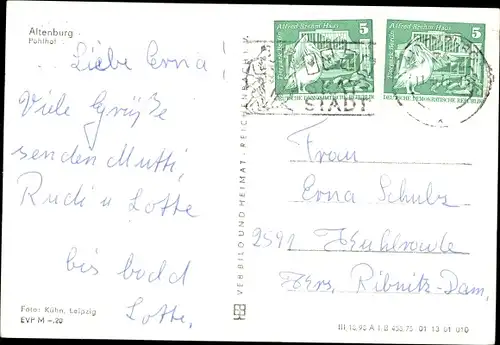 Altenburg
Pohlhof
Liebe Erna!
Viele Grüße
senden Mutti,
Rudi u Lotte
bis bald
Lotte.
Foto: Kühn, Leipzig
EVP M -.20
VEB BILD UND HEIMAT, REICHENBACH I. V.
Alfred Brehm Haus
5
Tierpark Berlin
DEUTSCHE DEMOKRATISCHE REPUBLIK
Alfred Brehm Haus
5
Tierpark Berlin
DEUTSCHE DEMOKRATISCHE REPUBLIK
STADT
Frau
Erna Schulz
2591 Kuhlrade
Krs. Ribnitz-Dam.
01 13 01 010